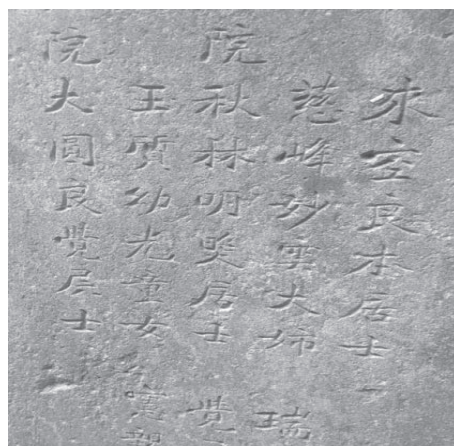 永空良本居士
慈峰妙雲大姉 瑞
院秋林明奕居士 覺
玉質幼光童女
院大圓良覺居士